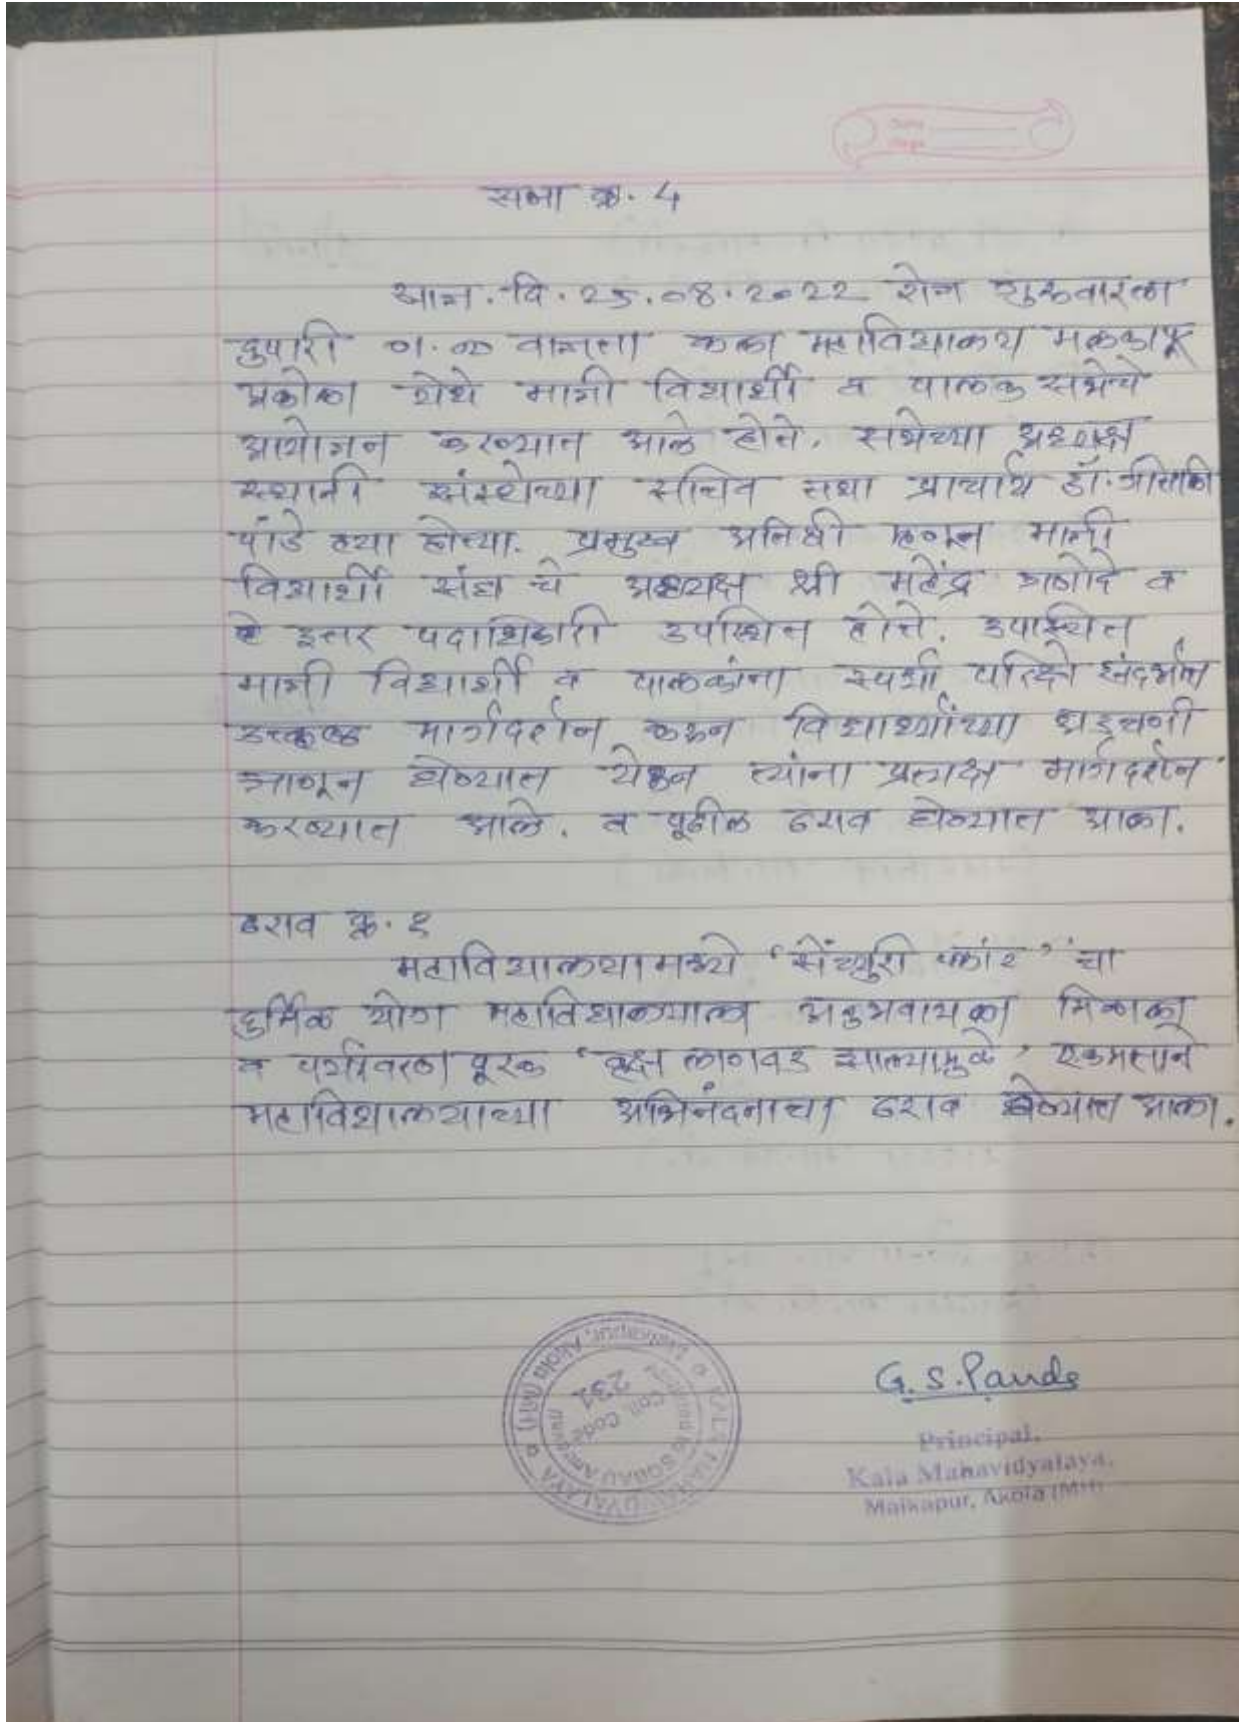 सभा क्र. 4
आज. दि. 25.08.2022 रोज शुक्रवारला
दुपारी 01.00 वाजता कला महाविद्यालय मलकापूर
अकोला येथे माजी विद्यार्थी व पालक सभेचे
आयोजन करण्यात आले होते. सभेच्या अध्यक्ष
स्थानी संस्थेच्या सचिव तथा प्राचार्य डॉ. गीतांजली
पांडे ह्या होत्या. प्रमुख अतिथी म्हणून माजी
विद्यार्थी संघ चे अध्यक्ष श्री महेंद्र व
इत्तर पदाधिकारी उपस्थित होते. उपस्थित
माजी विद्यार्थी व पालकांना स्पर्धा परिक्षे संदर्भात
मार्गदर्शन करून विद्यार्थ्यांच्या अडचणी
जाणून घेण्यात येऊन त्यांना प्रत्यक्ष मार्गदर्शन
करण्यात आले. व पूढील ठराव घेण्यात आला.
ठराव क्र. १
महाविद्यालयामध्ये 'सेंच्युरी प्लांट' चा
दुर्मिळ योग महाविद्यालयात अनुभवायला मिळाला
व पर्यावरण पूरक 'वृक्ष लागवड झाल्यामुळे' एकमताने
महाविद्यालयाच्या अभिनंदनाचा ठराव घेण्यात आला.
G. S. Pande
Principal,
Kala Mahavidyalaya,
Malkapur, Akola (MH)
KALA MAHAVIDYALAYA
Malkapur, Akola (MH)
Coll. Code
231